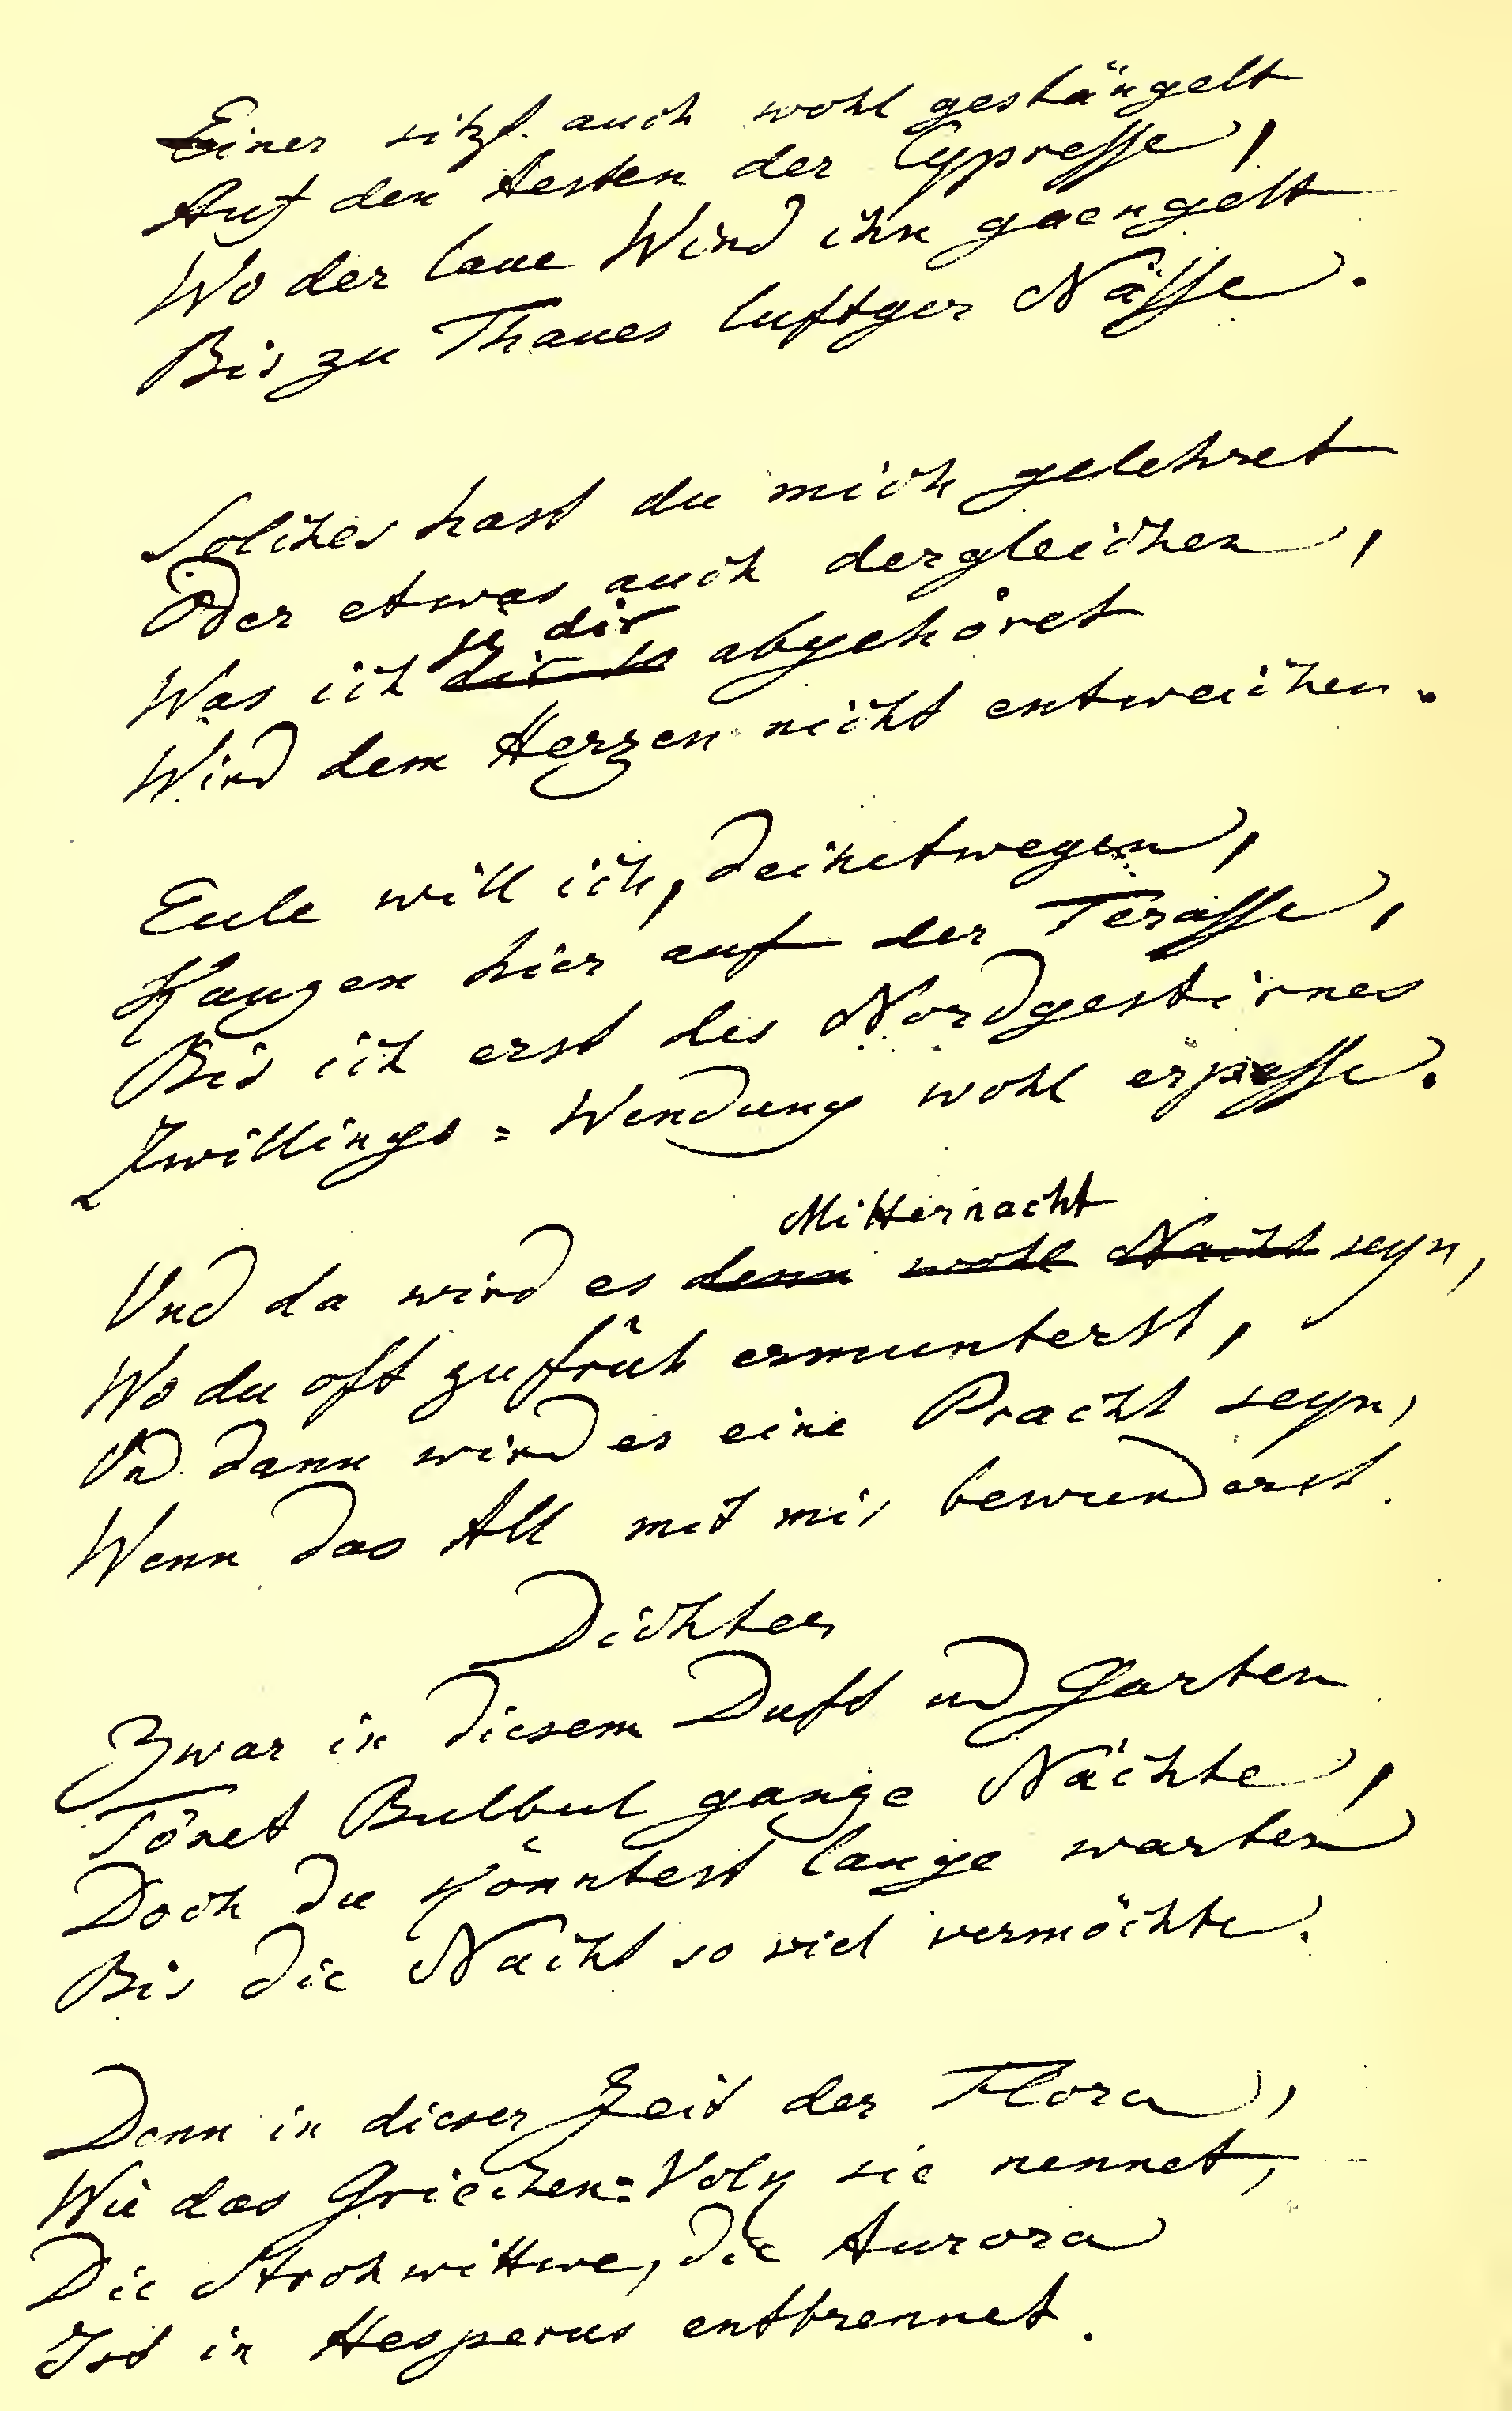 Einer sitzt auch wohl gestängelt
Auf den Aesten der Cypresse,
Wo der laue Wind ihn gaengelt
Bis zu Thaues luftger Nässe.
Solches hast du mich gelehret
Oder etwas auch dergleichen,
je dir
Was ich dir je abgehöret
Wird dem Herzen nicht entweichen.
Eule will ich, deinetwegen,
Kauzen hier auf der Terasse,
Bis ich erst des Nordgestirnes
Zwillings=Wendung wohl erpasse.
Mitternacht
Und da wird es denn wohl Nacht seyn,
Wo du oft zu früh ermunterst,
Und dann wird es eine Pracht seyn,
Wenn das All mit mir bewunderst.
Dichter
Zwar in diesem Duft und Garten
Tönet Bulbul ganze Nächte,
Doch du könntest lange warten
Bis die Nacht so viel vermöchte.
Denn in dieser Zeit der Flora,
Wie das Griechen=Volk sie nennet,
Die Strohwittwe, die Aurora
Ist in Hesperus entbrennet.